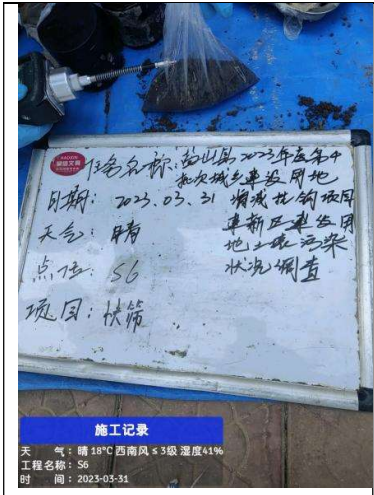 任务名称:萧山县2023年度第4
批次城乡建设用地
日期:2023.03.31 增减挂钩项目
建新区建设用
天气:晴
地土壤污染
点位:S6
状况调查
项目:快筛
施工记录
天 气:晴 18℃ 西南风≤3级 湿度41%
工程名称:S6
时 间:2023-03-31